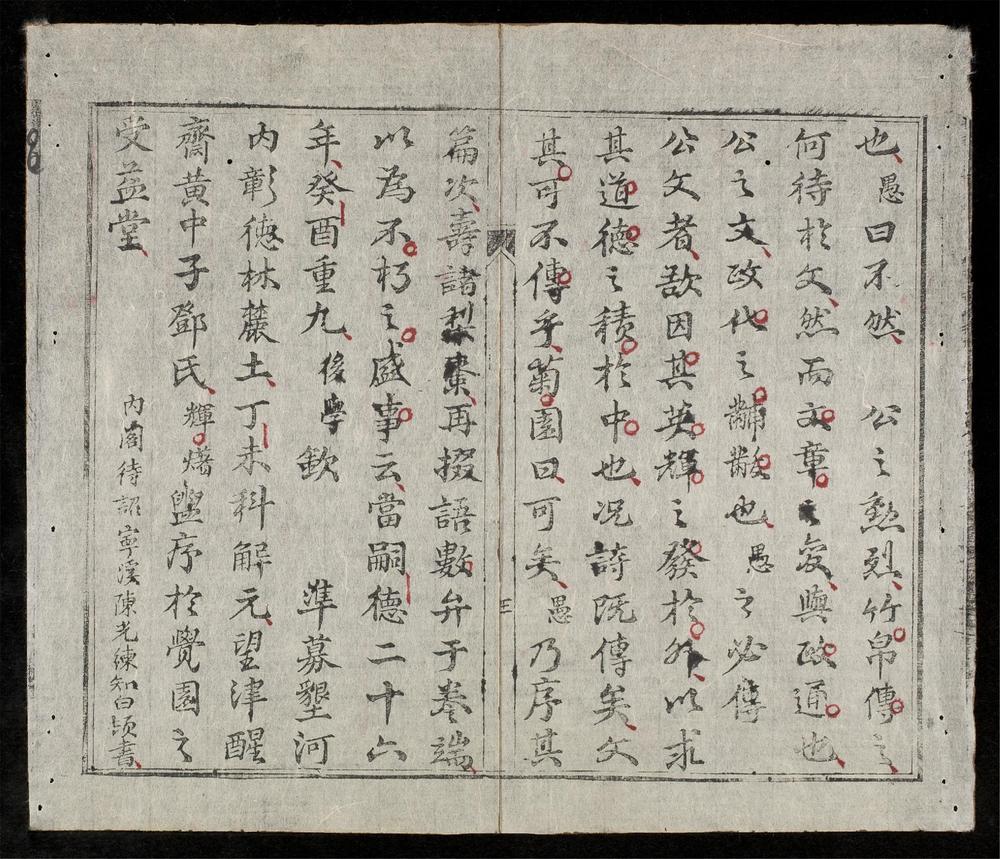 也愚曰不然　公之勲烈竹帛傳之
何待於文然而文章之爰與政通也
公之文政代之黼黻也愚之必傳
公文者欲因其英輝之發於外以求
其道德之積於中也况詩既傳矣文
其可不傳乎菊園曰可矣愚乃序其
三
篇次壽諸梨棗再掇語數弁于卷端
以為不朽之盛事云當嗣德二十六
年癸酉重九後學欽　準募墾河
内彰德林麓土丁未科解元望津醒
齋黄中子鄧氏輝𤒘盥序於覺園之
受益堂
内閣待詔寧溪陳光練知白頃書